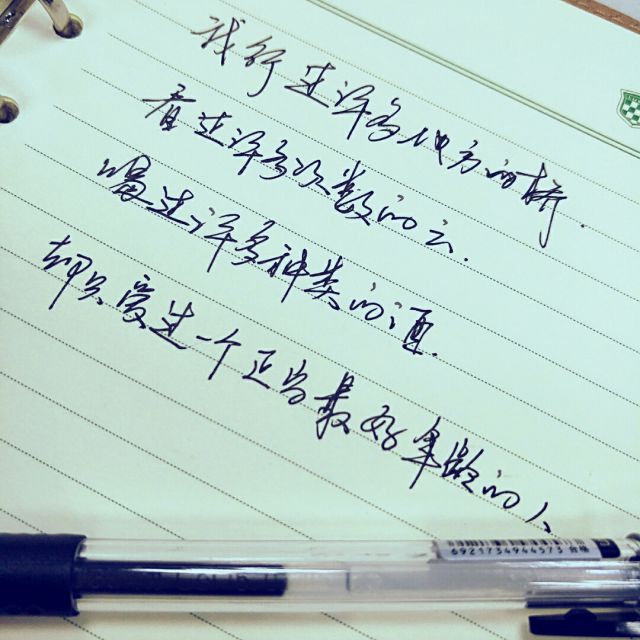 我行过许多地方的桥.
看过许多次数的云.
喝过许多种类的酒.
却只爱过一个正当最好年龄的人
6921734944573